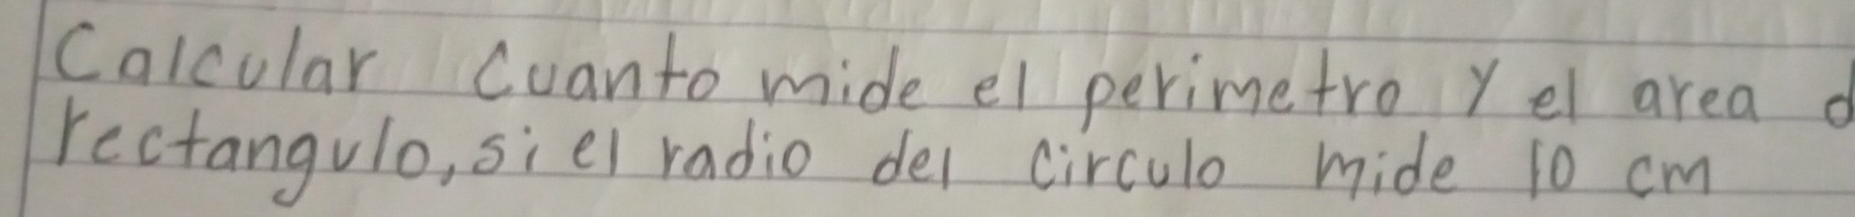 Calcular Cuanto mide el perimetro y el area d
rectangulo, si el radio del circulo mide 10 cm